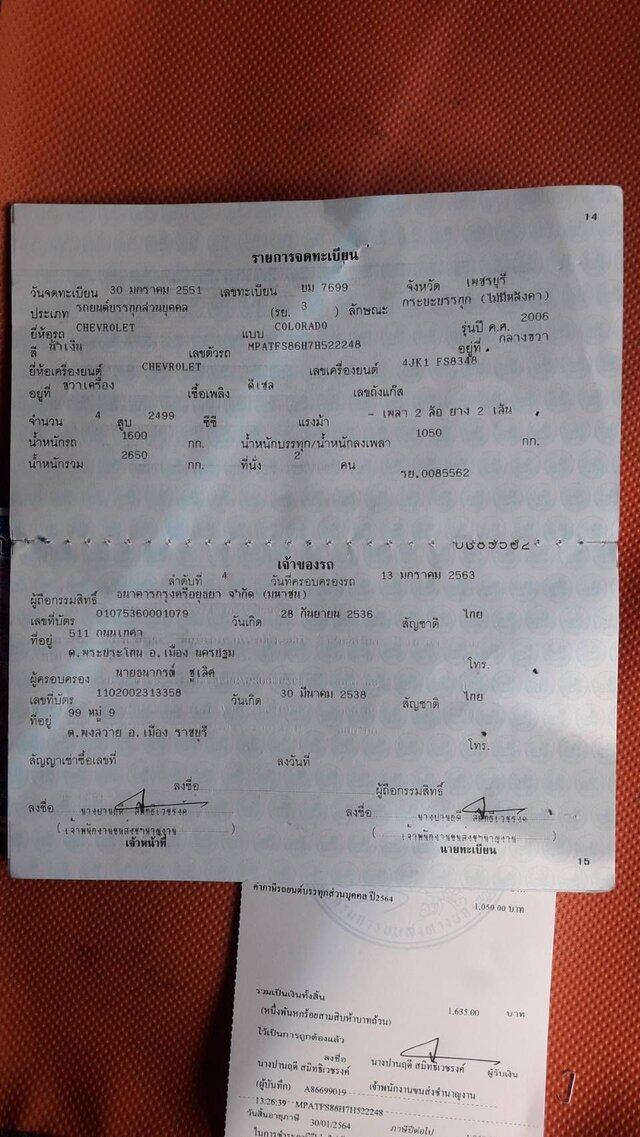 14
รายการจดทะเบียน
วันจดทะเบียน 30 มกราคม 2551 เลขทะเบียน ยม 7699 จังหวัด เพชรบุรี
ประเภท รถยนต์บรรทุกส่วนบุคคล (รย. 3 ) ลักษณะ กระบะบรรทุก (ไม่มีหลังคา)
ยี่ห้อรถ CHEVROLET แบบ COLORADO รุ่นปี ค.ศ. 2006
สี น้ำเงิน เลขตัวรถ MPATFS86H7H522248 อยู่ที่ กลางขวา
ยี่ห้อเครื่องยนต์ CHEVROLET เลขเครื่องยนต์ 4JK1 FS8348
อยู่ที่ ขวาเครื่อง เชื้อเพลิง ดีเซล เลขถังแก๊ส
จำนวน 4 สูบ 2499 ซีซี แรงม้า - เพลา 2 ล้อ ยาง 2 เส้น
น้ำหนักรถ 1600 กก. น้ำหนักบรรทุก/น้ำหนักลงเพลา 1050 กก.
น้ำหนักรวม 2650 กก. ที่นั่ง 2 คน
รย.0085562
เจ้าของรถ
ลำดับที่ 4 วันที่ครอบครองรถ 13 มกราคม 2563
ผู้ถือกรรมสิทธิ์ ธนาคารกรุงศรีอยุธยา จำกัด (มหาชน)
เลขที่บัตร 01075360001079 วันเกิด 28 กันยายน 2536 สัญชาติ ไทย
ที่อยู่ 511 ถนนเทศา
ต.พระประโทน อ.เมือง นครปฐม
โทร.
ผู้ครอบครอง นายธนากรต์ ชูเลิศ
เลขที่บัตร 1102002313358 วันเกิด 30 มีนาคม 2538 สัญชาติ ไทย
ที่อยู่ 99 หมู่ 9
ต.พงสวาย อ.เมือง ราชบุรี
โทร.
สัญญาเช่าซื้อเลขที่ ลงวันที่
ลงชื่อ ผู้ถือกรรมสิทธิ์
ลงชื่อ นางปานฤดี สมิทธิเวชรงค์ ลงชื่อ นางปานฤดี สมิทธิเวชรงค์
(เจ้าพนักงานขนส่งชำนาญงาน) (เจ้าพนักงานขนส่งชำนาญงาน)
เจ้าหน้าที่ นายทะเบียน
15
ค่าภาษีรถยนต์บรรทุกส่วนบุคคล ปี2564 1,050.00 บาท
รวมเป็นเงินทั้งสิ้น 1,635.00 บาท
(หนึ่งพันหกร้อยสามสิบห้าบาทถ้วน)
ไว้เป็นการถูกต้องแล้ว
ลงชื่อ ผู้รับเงิน
นางปานฤดี สมิทธิเวชรงค์ นางปานฤดี สมิทธิเวชรงค์
(ผู้บันทึก) A86699019 เจ้าพนักงานขนส่งชำนาญงาน
13:26:39 MPATFS86H7H522248
วันสิ้นอายุภาษี 30/01/2564 ภาษีปีต่อไป